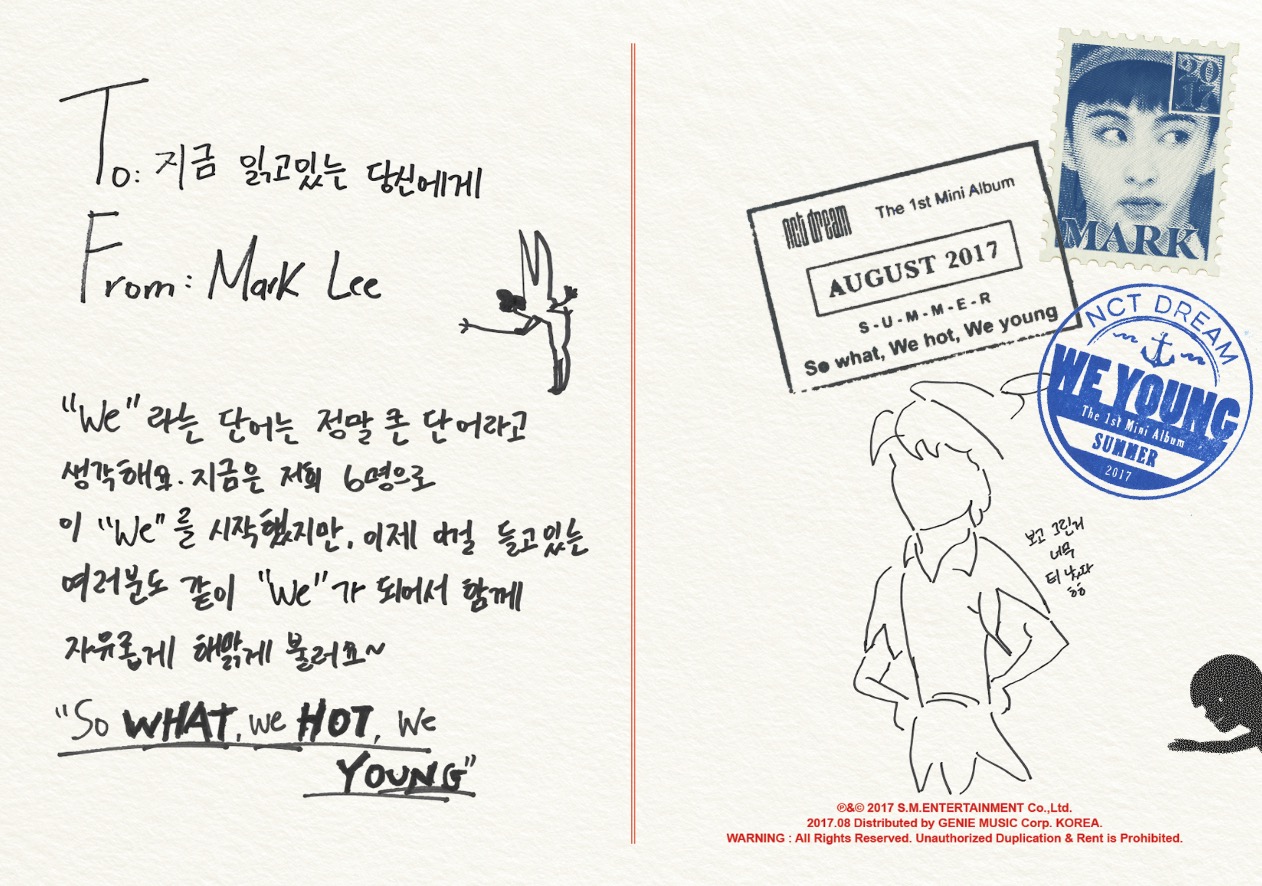 To: 지금 읽고있는 당신에게
From: Mark Lee
"We" 라는 단어는 정말 큰 단어라고
생각해요. 지금은 저희 6명으로
이 "We"를 시작했지만, 이제 이걸 듣고있는
여러분도 같이 "We"가 되어서 함께
자유롭게 해맑게 불러요~
"So WHAT, we HOT, We
YOUNG"
2017
MARK
nct dream The 1st Mini Album
AUGUST 2017
S-U-M-M-E-R
So what, We hot, We young
NCT DREAM
WE YOUNG
The 1st Mini Album
SUMMER
2017
보고 그린거
너무
티 났나
ㅎㅎ
℗&© 2017 S.M.ENTERTAINMENT Co.,Ltd.
2017.08 Distributed by GENIE MUSIC Corp. KOREA.
WARNING : All Rights Reserved. Unauthorized Duplication & Rent is Prohibited.